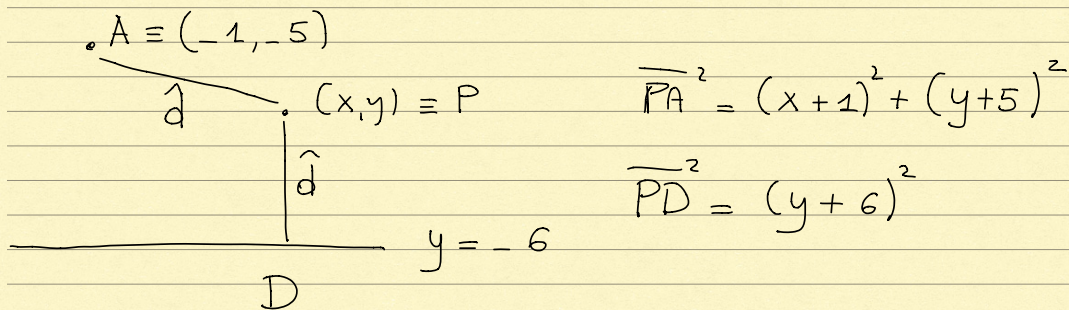 . A ≡ (-1,-5)
d̂
. (x,y) ≡ P
d̂
y = - 6
D
\overline{PA}² = (x+1)² + (y+5)²
\overline{PD}² = (y + 6)²